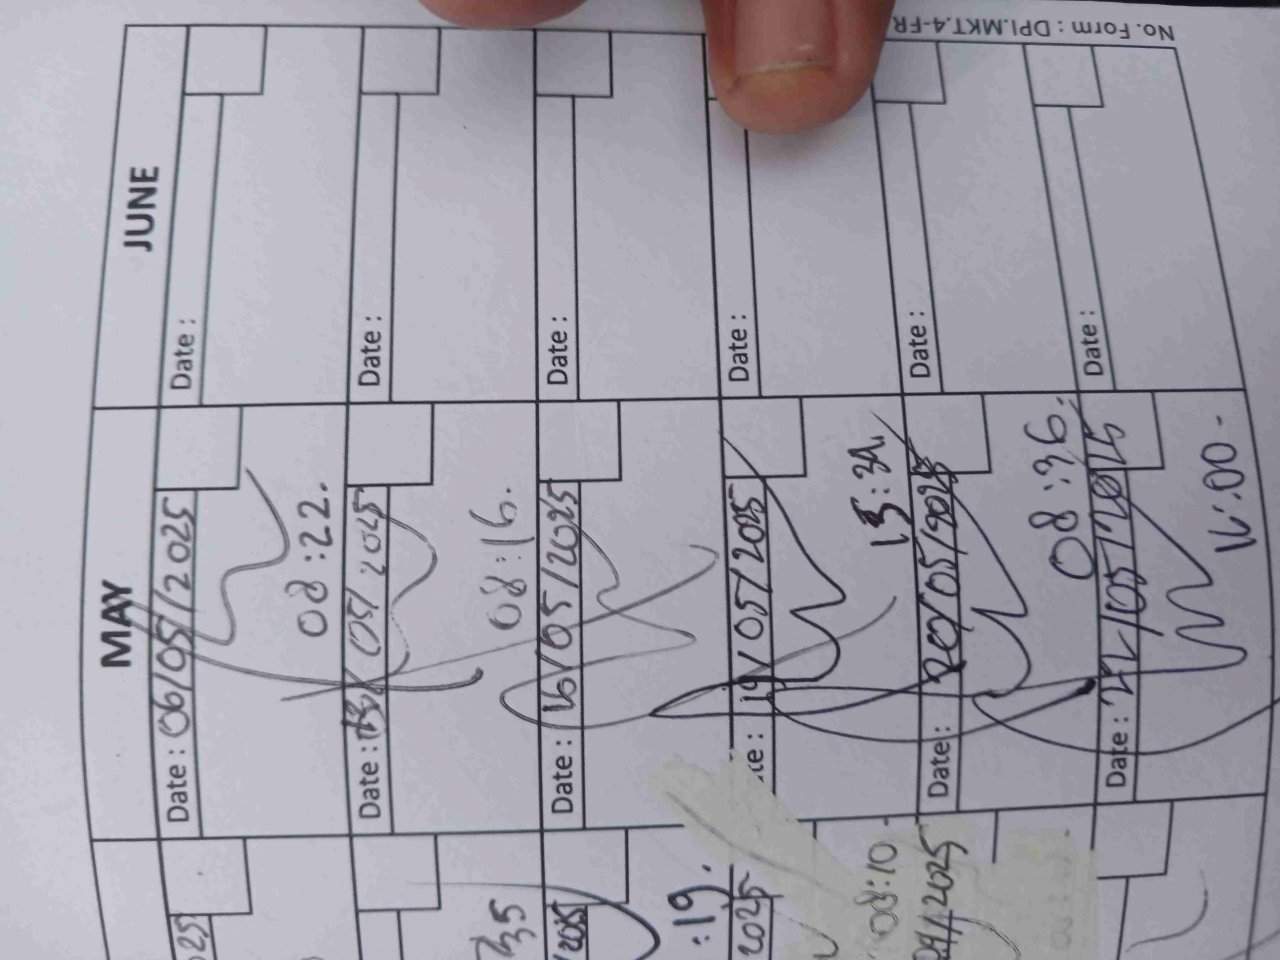 No. Form : DPI.MKT.4-FR
MAY
JUNE
Date : 06/05/2025
08:22.
Date :
Date : /05/2025
08:16.
Date :
Date : 16/05/2025
Date :
Date : 19/05/2025
Date :
Date : 20/05/2025
08:36.
Date :
Date : 22/05/2025
16:00.
Date :
:19.
2025
08:10
/2025